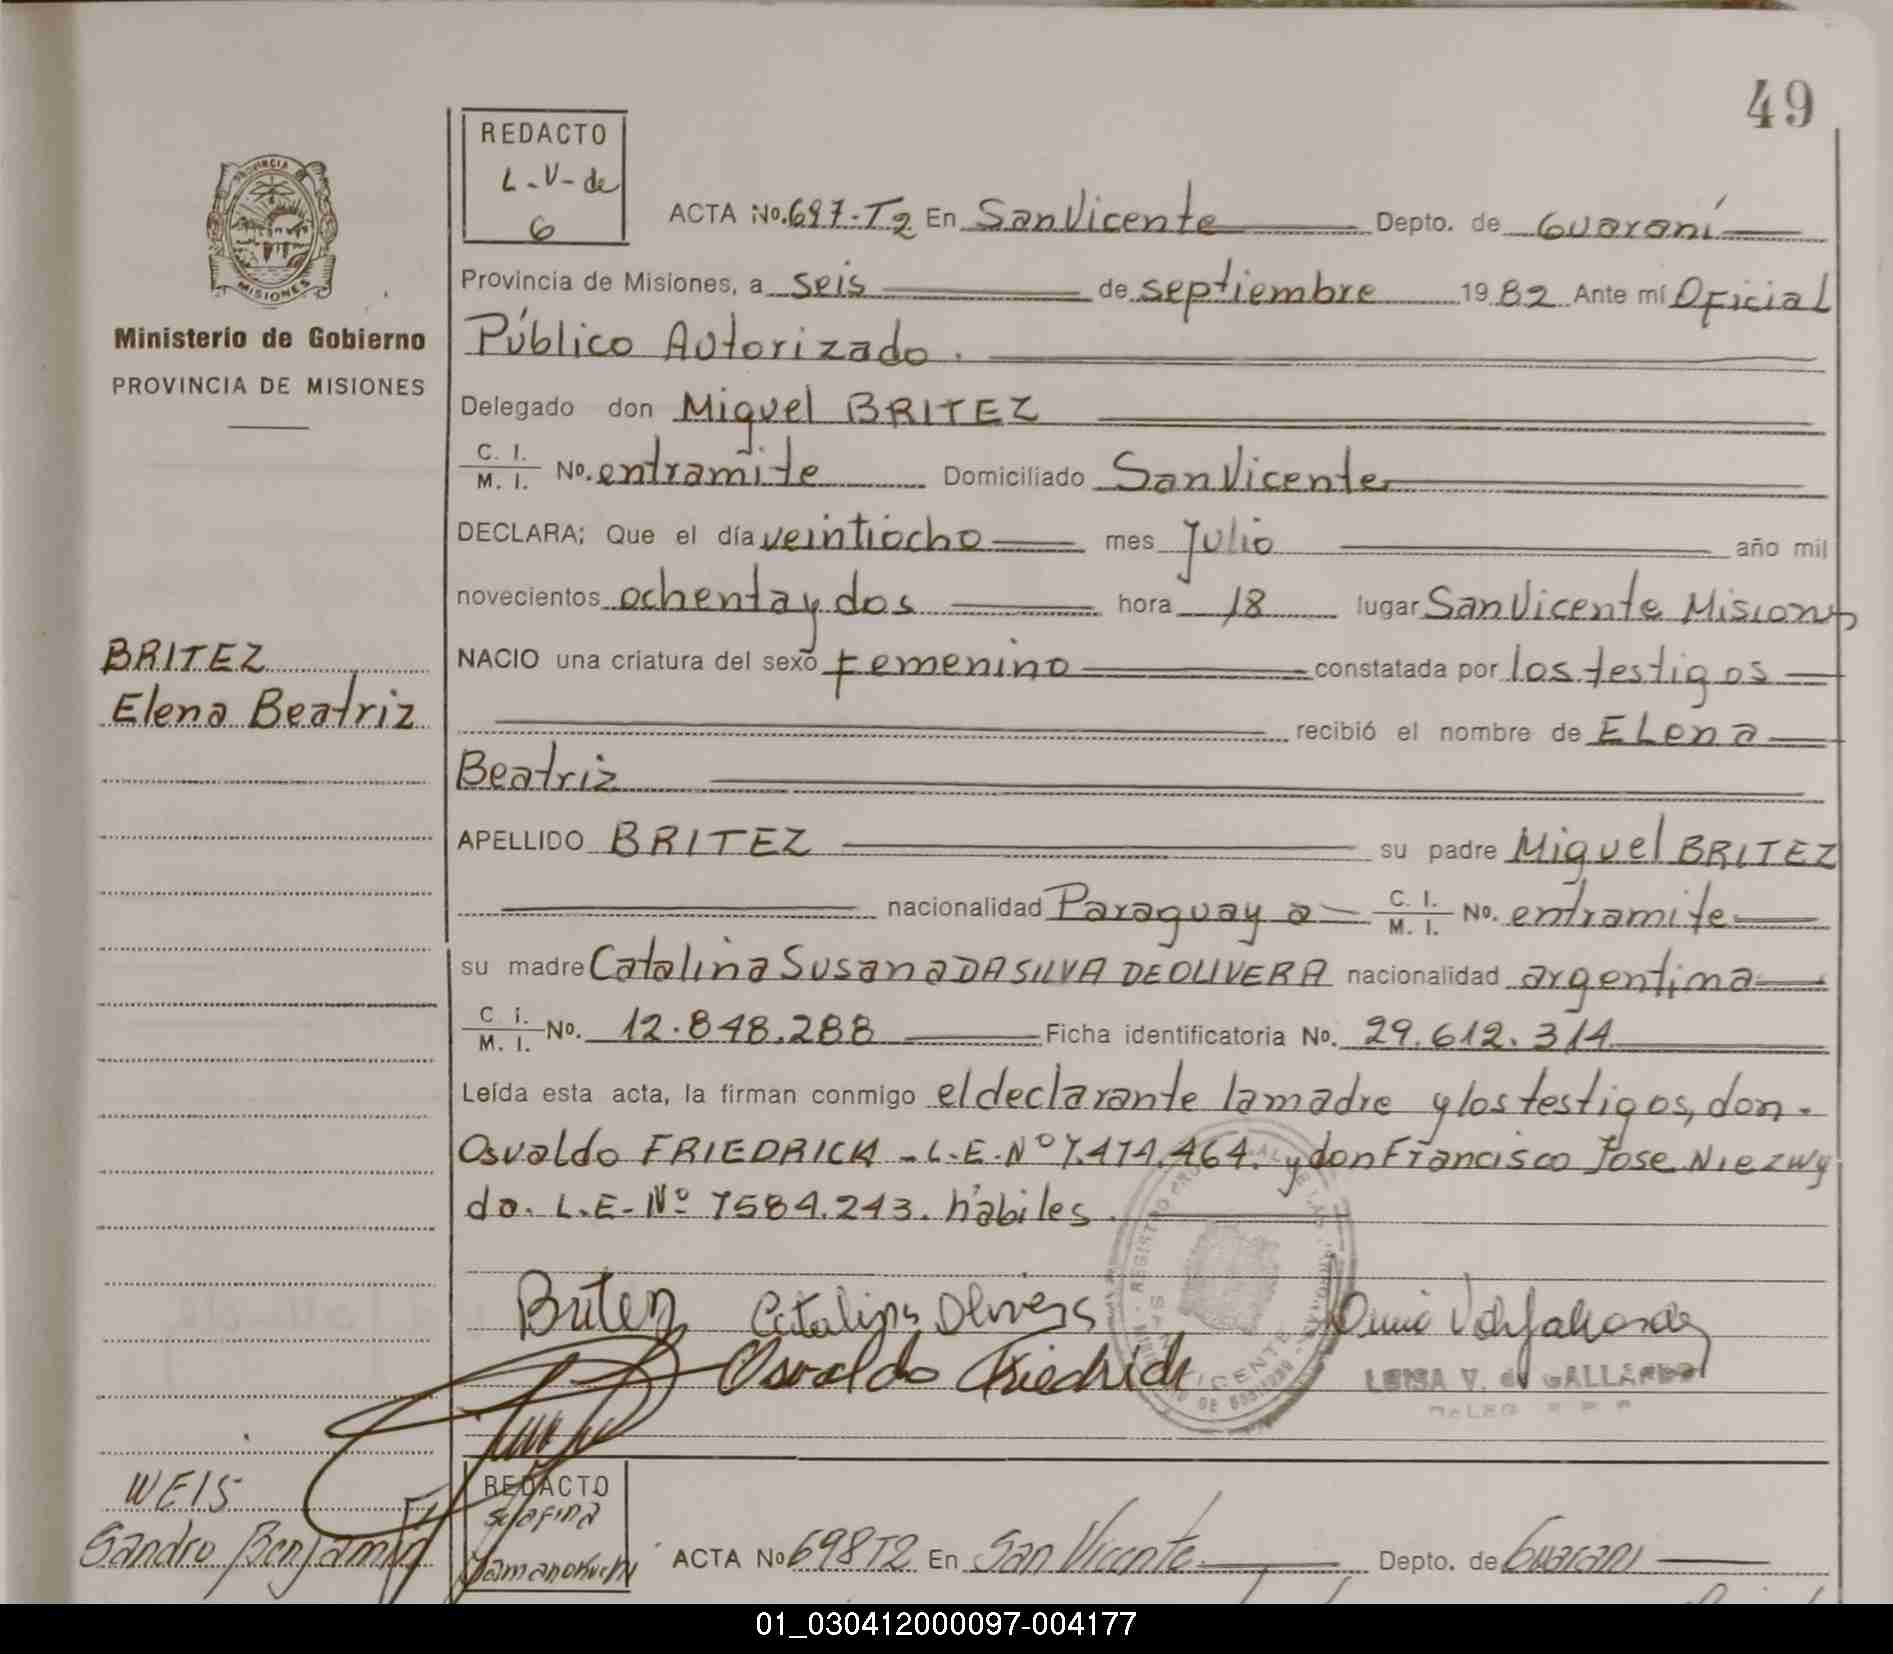 49
REDACTO
L.V- de
G
PROVINCIA
MISIONES
Ministerio de Gobierno
PROVINCIA DE MISIONES
ACTA No. 697-T2 En San Vicente Depto. de Guaraní
Provincia de Misiones, a seis de septiembre 1982 Ante mí Oficial
Público Autorizado.
Delegado don Miguel BRITEZ
C. I.
M. I. No. entramite Domiciliado San Vicente
DECLARA; Que el día veintiocho mes Julio año mil
novecientos ochenta y dos hora 18 lugar San Vicente Misiones
BRITEZ
Elena Beatriz
NACIO una criatura del sexo femenino constatada por los testigos
recibió el nombre de ELena
Beatriz
APELLIDO BRITEZ su padre Miguel BRITEZ
nacionalidad Paraguaya C. I.
M. I. No. entramite
su madre Catalina Susana DA SILVA DE OLIVERA nacionalidad argentina
C i.
M. I. No. 12.848.288 Ficha identificatoria No. 29.612.314
Leída esta acta, la firman conmigo el declarante la madre y los testigos, don.
Osvaldo FRIEDRICH - L.E. Nº 7.474.464. y don Francisco Jose Niezwy
da. L.E. Nº 7584.243. hábiles.
Britez Catalina Olivera
Osvaldo Friedrich
VICENTE
LEISA V. de GALLARDO
WEIS
Sandro Benjamin
REDACTO
Serafina
ACTA No 698 T2 En San Vicente Depto. de Guarani
01_030412000097-004177